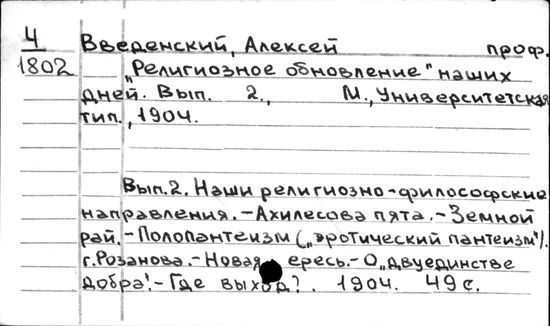 4
1802
Введенский, Алексей проф.
„Религиозное обновление" наших
дней. Вып. 2., М., Университетская
тип., 1904.
Вып. 2. Наши религиозно-философские
направления. – Ахилесова пята. – Земной
рай. – Полопантеизм („эротический пантеизм")
г. Розанова. – Новая ересь. – О „двуединстве
добра". – Где выход? . 1904. 49 с.